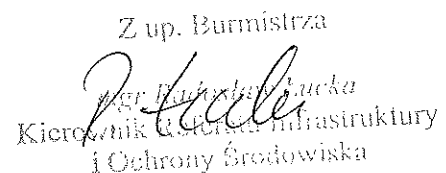 Z up. Burmistrza
mgr Radosław Łucka
Kierownik Referatu Infrastruktury
i Ochrony Środowiska